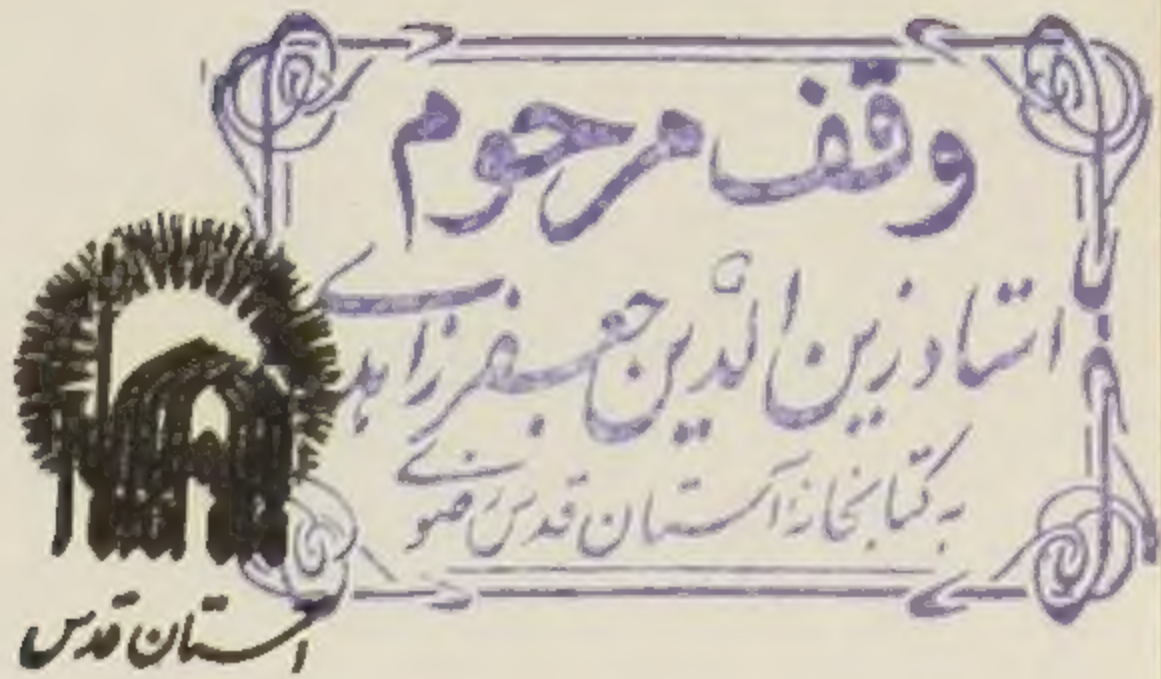 وقف مرحوم
استاد زین الدین جعفر زاهدی
به کتابخانه آستان قدس رضوی
آستان قدس